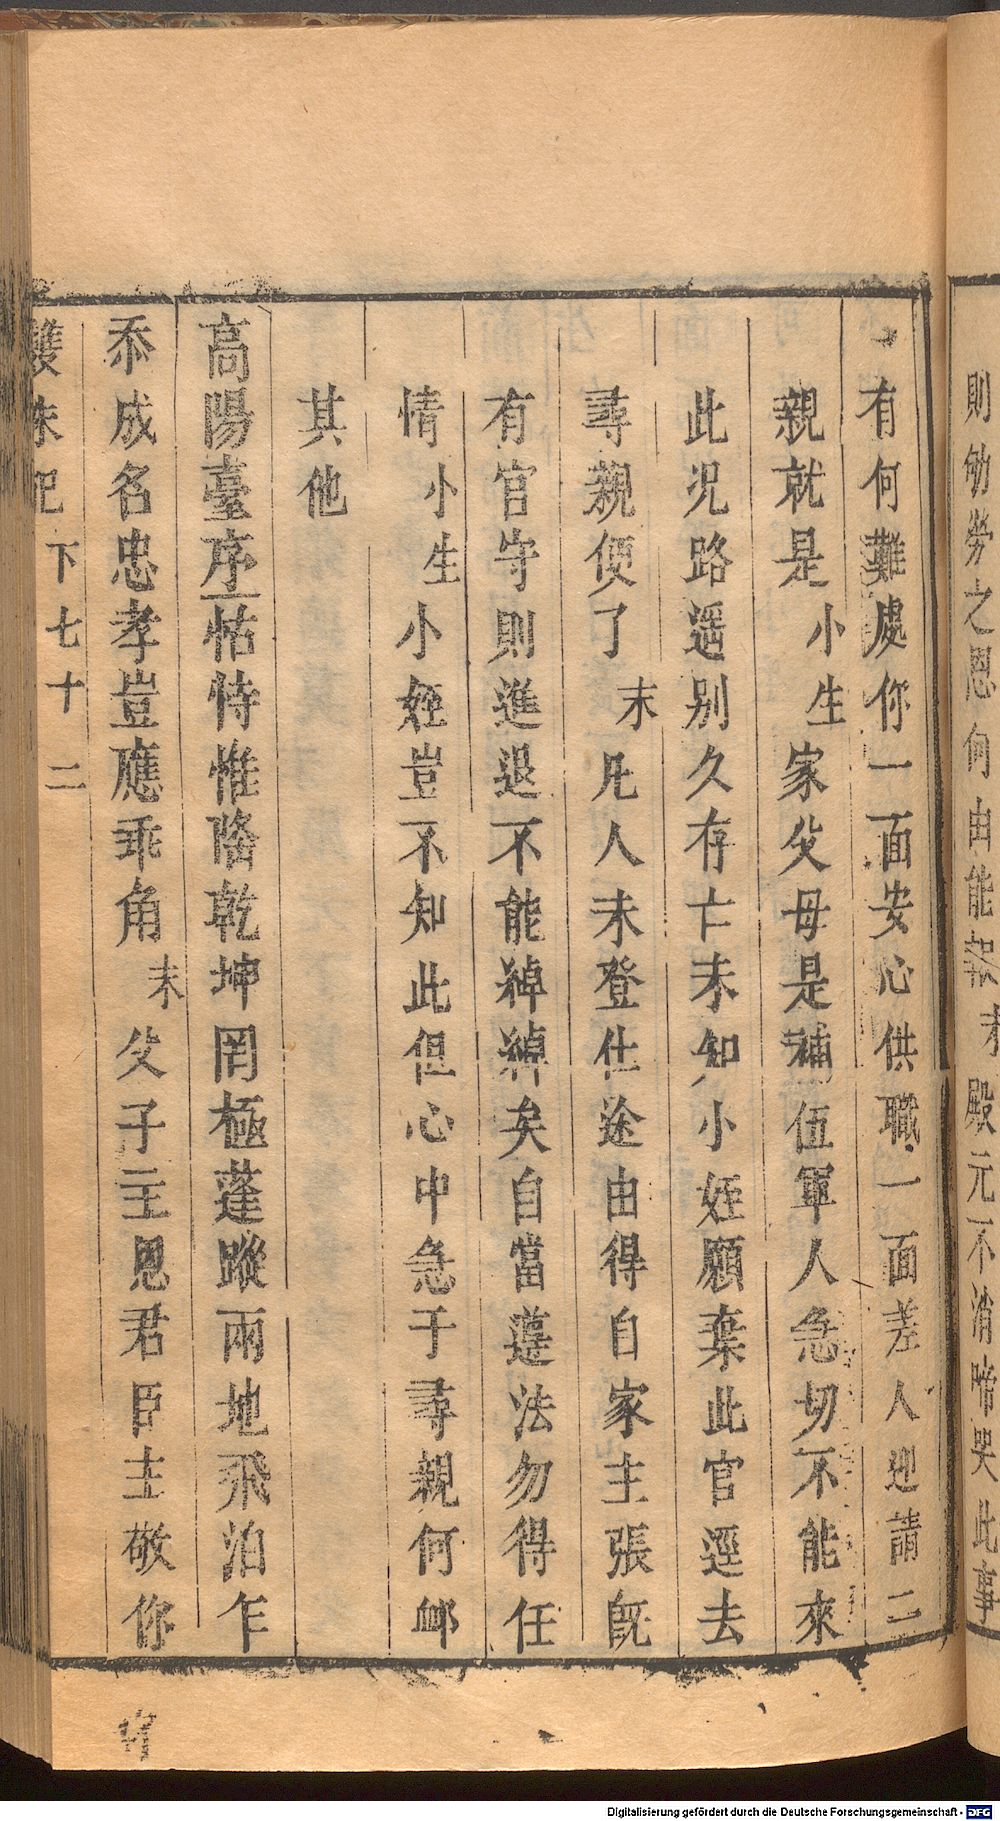 則劬勞之恩何由能報末殿元不消啼哭此事
有何難處你一面安心供職一面差人迎請二
親就是小生家父母是補伍軍人急切不能來
此况路遥别久存亡未知小姪願棄此官逕去
尋親便了末凡人未登仕途由得自家主張既
有官守則進退不能綽綽矣自當遵法勿得任
情小生小姪豈不知此但心中急于尋親何邮
其他
高陽臺序怙恃惟隆乾坤罔極蓬蹤兩地飛泊乍
忝成名忠孝豈應乖角末父子主恩君臣主敬你
雙珠記下七十二
Digitalisierung gefördert durch die Deutsche Forschungsgemeinschaft - DFG